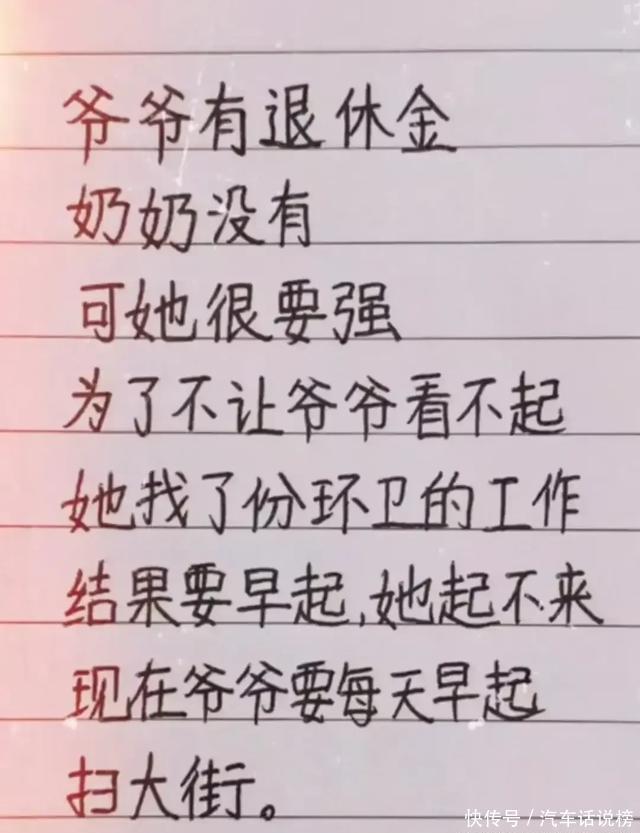 爷爷有退休金
奶奶没有
可她很要强
为了不让爷爷看不起
她找了份环卫的工作
结果要早起,她起不来
现在爷爷要每天早起
扫大街。
快传号/汽车话说榜